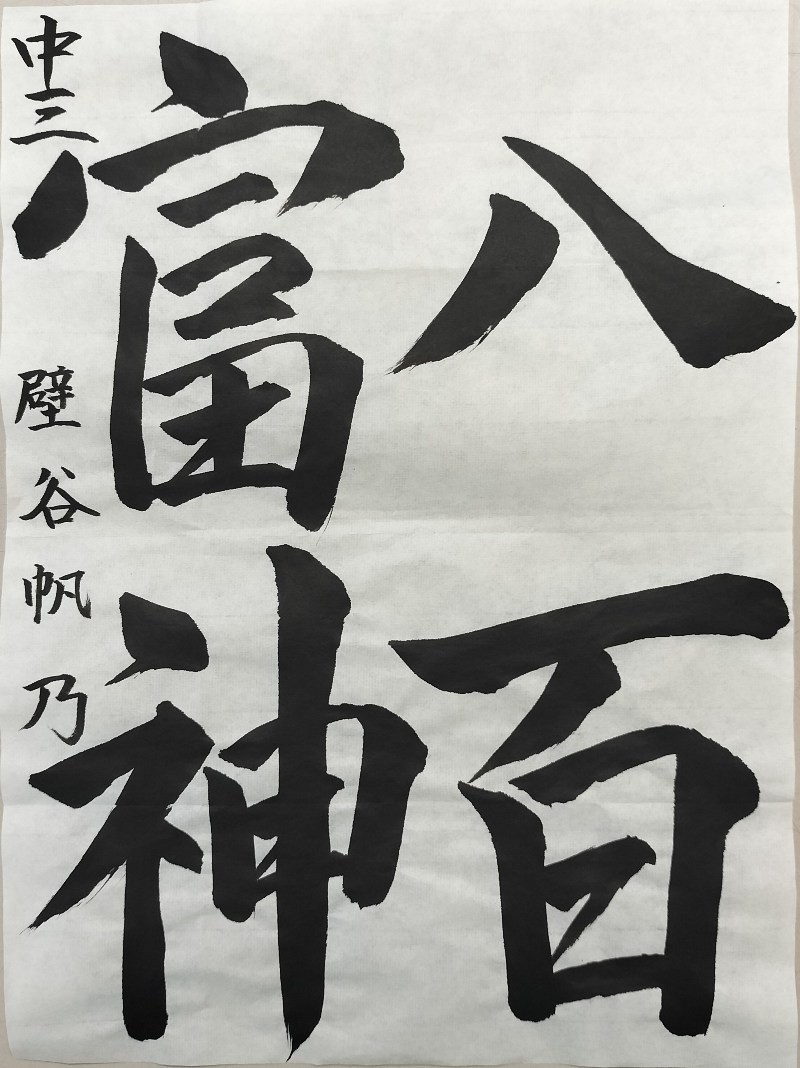 八百
富神
中三 壁谷帆乃